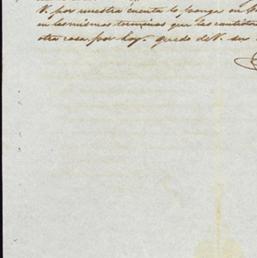 V. por nuestra cuenta lo ponga en
en los mismos terminos que las
otra cosa por hoy, quedo de V. su